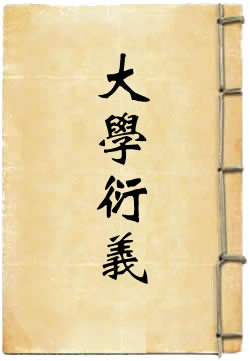 大學衍義